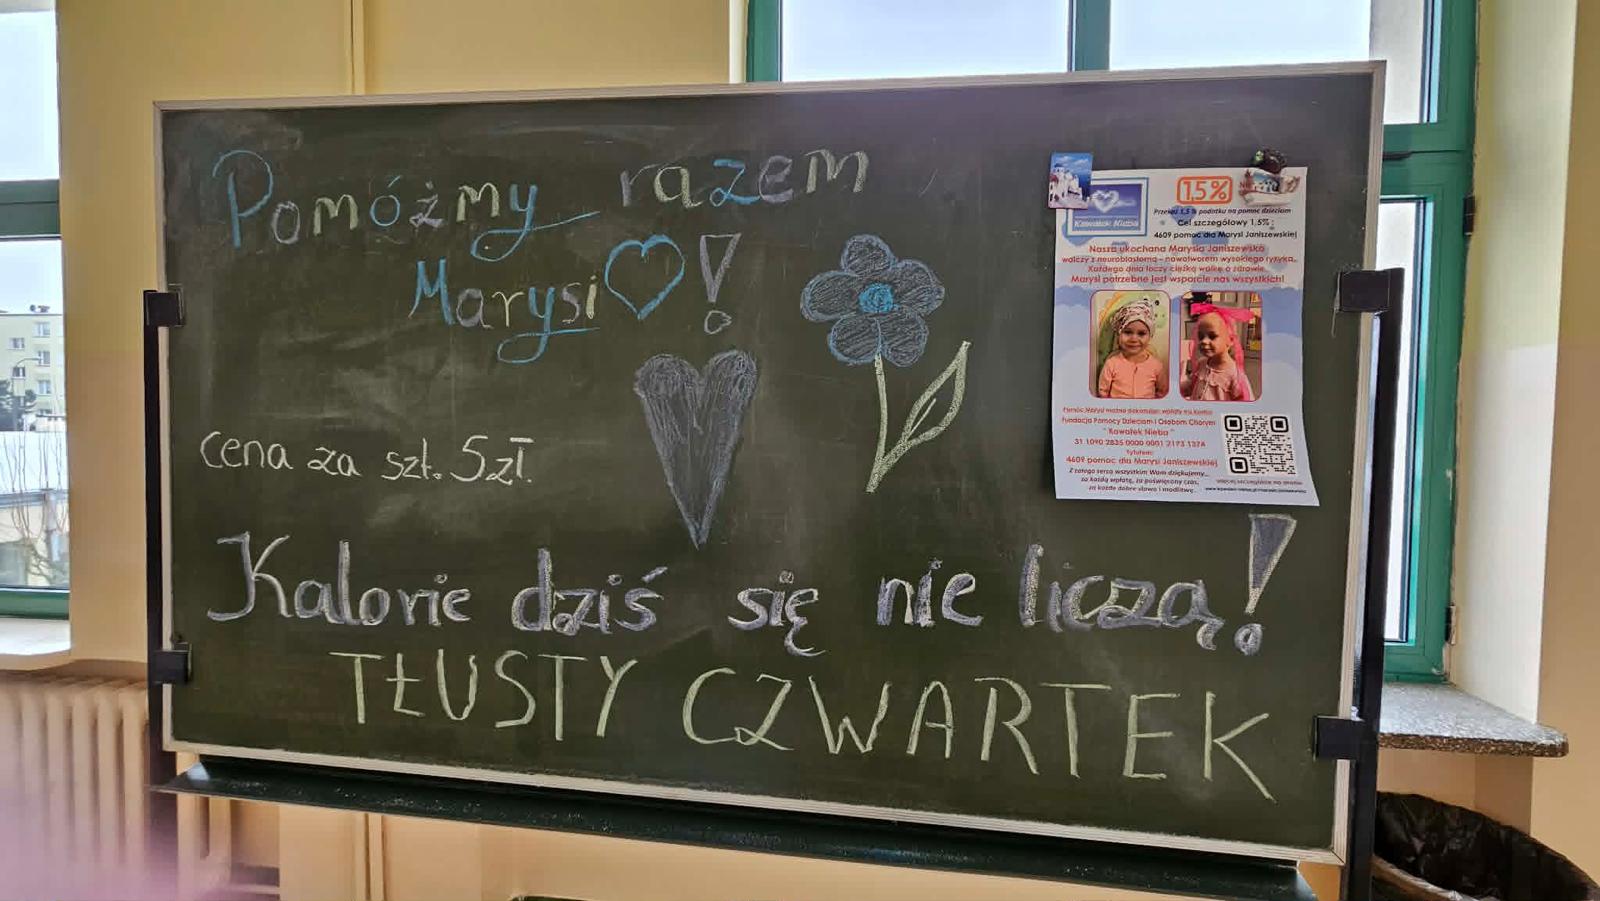 Pomóżmy razem
Marysi !
cena za szt. 5zł.
Kalorie dziś się nie liczą!
TŁUSTY CZWARTEK
1,5%
Kawałek Nieba
Przekaż 1,5 % podatku na pomoc dzieciom
Cel szczegółowy 1,5% :
4609 pomoc dla Marysi Janiszewskiej
Nasza ukochana Marysia Janiszewska
walczy z neuroblastomą - nowotworem wysokiego ryzyka.
Każdego dnia toczy ciężką walkę o zdrowie.
Marysi potrzebne jest wsparcie nas wszystkich!
Pomóc Marysi można dokonując wpłaty na konto:
Fundacja Pomocy Dzieciom i Osobom Chorym
"Kawałek Nieba"
31 1090 2835 0000 0001 2173 1374
Tytułem:
4609 pomoc dla Marysi Janiszewskiej
Z całego serca wszystkim Wam dziękujemy...
za każdą wpłatę, za poświęcony czas,
za każde dobre słowo i modlitwę.